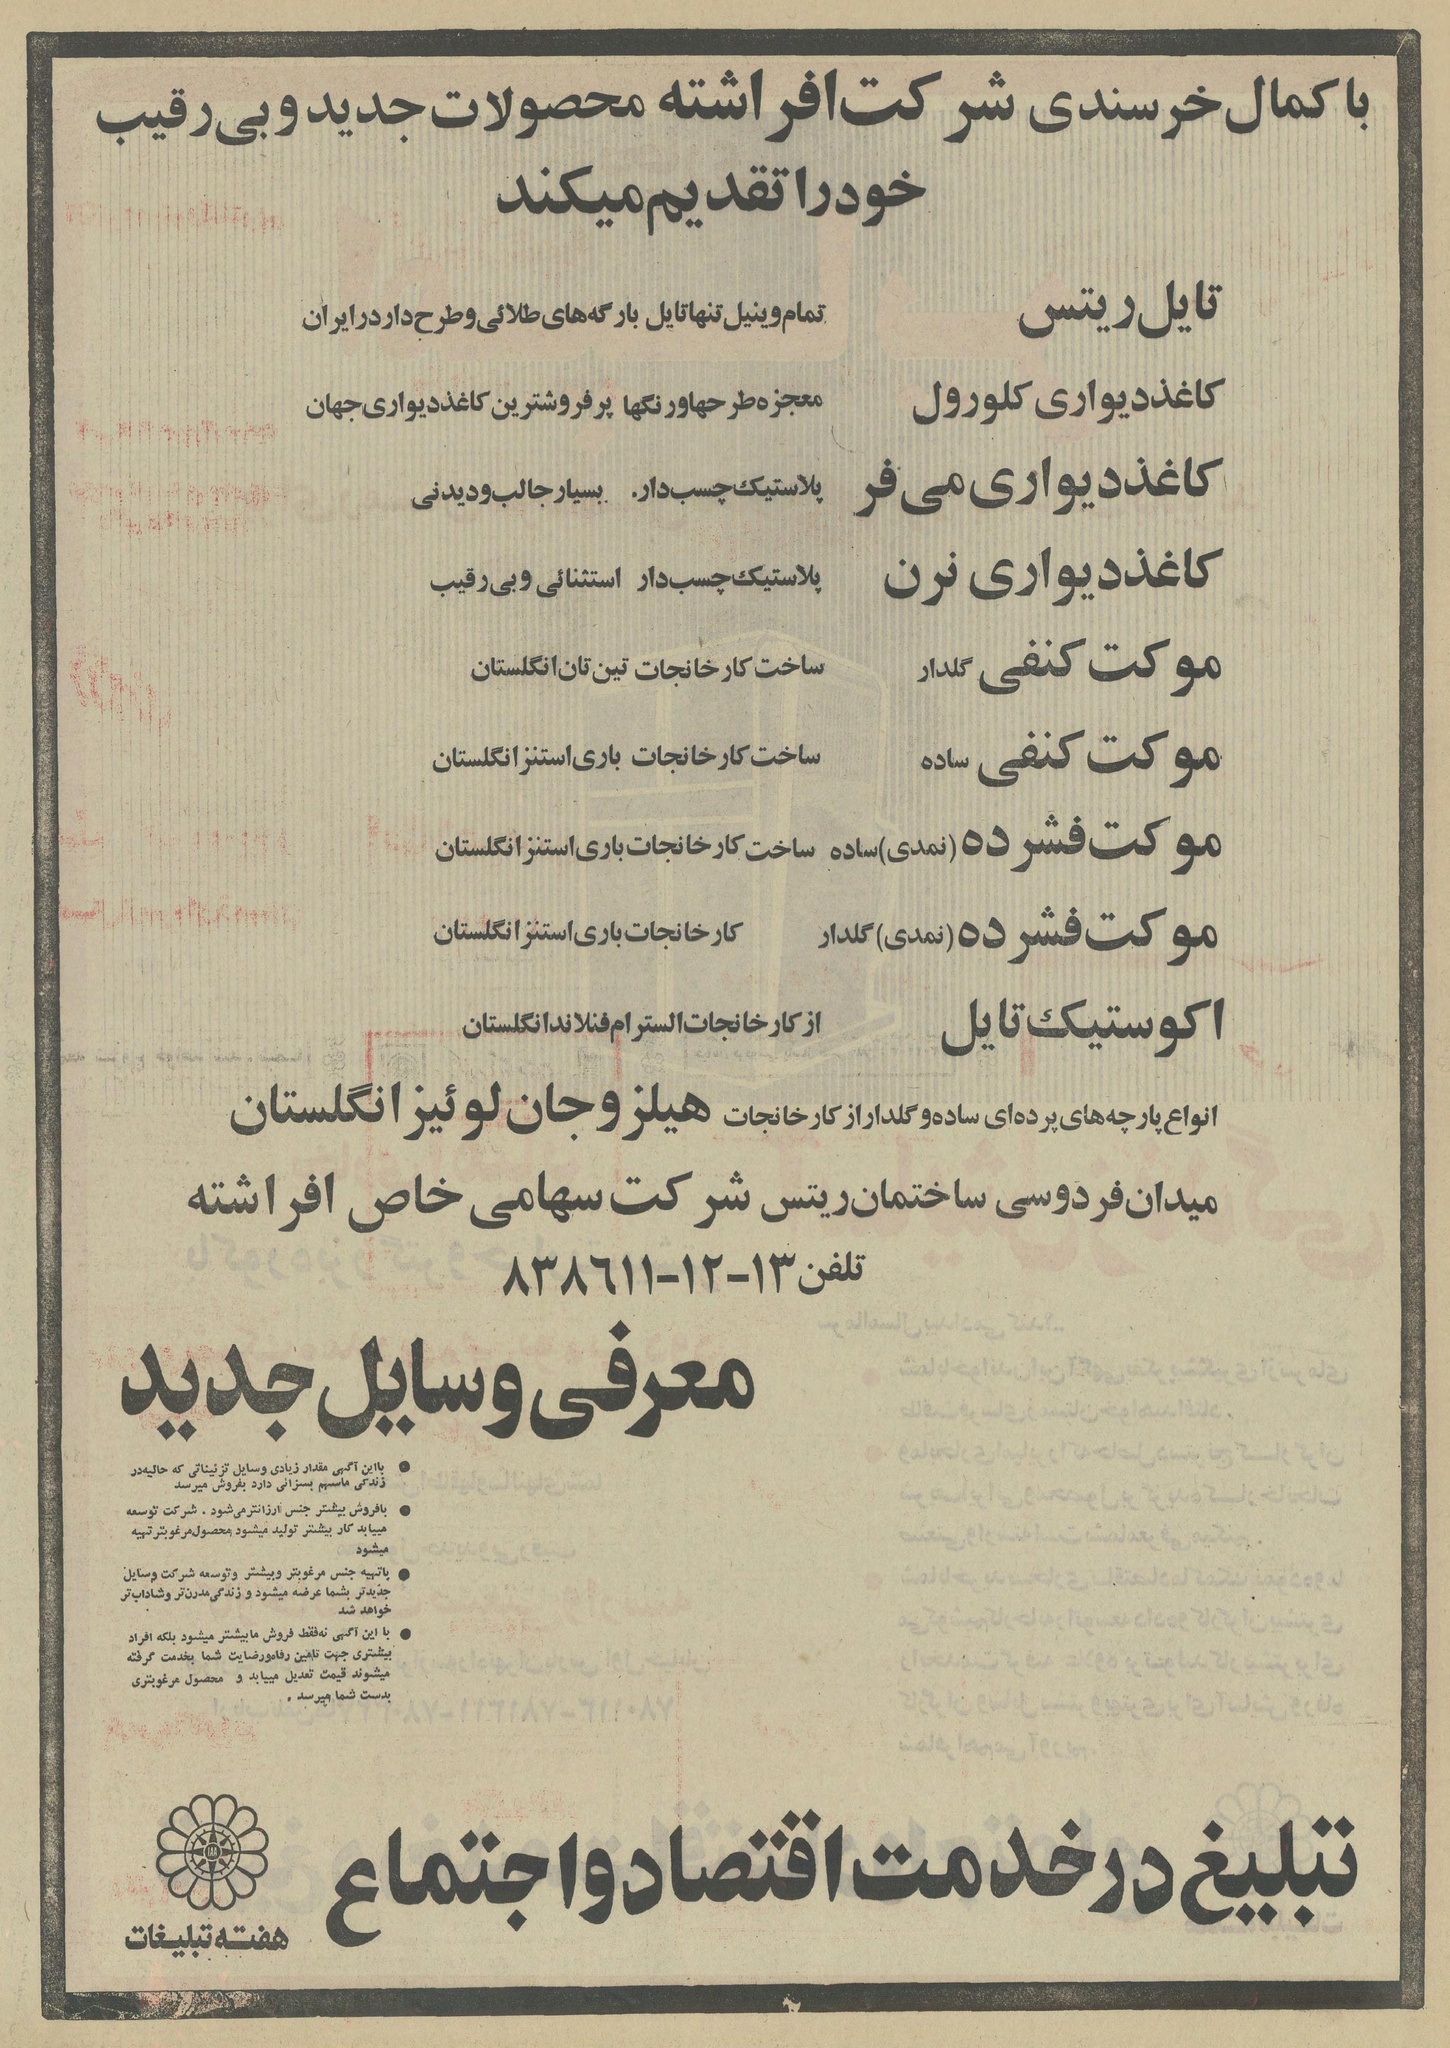 با کمال خرسندی شرکت افراشته محصولات جدید و بی رقیب
خود را تقدیم میکند
تایل ریتس تمام وینیل تنها تایل با رگه‌های طلائی و طرح دار در ایران
کاغذ دیواری کلورول معجزه طرحها و رنگها پرفروشترین کاغذ دیواری جهان
کاغذ دیواری می فر پلاستیک چسب دار. بسیار جالب و دیدنی
کاغذ دیواری نرن پلاستیک چسب دار استثنائی و بی رقیب
موکت کنفی گلدار ساخت کارخانجات تین تان انگلستان
موکت کنفی ساده ساخت کارخانجات باری استنز انگلستان
موکت فشرده (نمدی) ساده ساخت کارخانجات باری استنز انگلستان
موکت فشرده (نمدی) گلدار کارخانجات باری استنز انگلستان
اکوستیک تایل از کارخانجات السترام فنلاند انگلستان
انواع پارچه‌های پرده‌ای ساده و گلدار از کارخانجات هیلز و جان لوئیز انگلستان
میدان فردوسی ساختمان ریتس شرکت سهامی خاص افراشته
تلفن ۱۳-۱۲-۸۳۸٦۱۱
معرفی وسایل جدید
● بااین آگهی مقدار زیادی وسایل تزئیناتی که حالیه‌در
زندگی ماسهم بسزائی دارد بفروش میرسد
● بافروش بیشتر جنس ارزانتر می‌شود . شرکت توسعه
مییابد کار بیشتر تولید میشود محصول مرغوبتر تهیه
میشود
● باتهیه جنس مرغوبتر و بیشتر و توسعه شرکت وسایل
جدیدتر بشما عرضه میشود و زندگی مدرن‌تر و شاداب‌تر
خواهد شد
● با این آگهی نه‌فقط فروش ما بیشتر میشود بلکه افراد
بیشتری جهت تامین رفاه و رضایت شما بخدمت گرفته
میشوند قیمت تعدیل مییابد و محصول مرغوبتری
بدست شما میرسد .
تبلیغ در خدمت اقتصاد و اجتماع
هفته تبلیغات